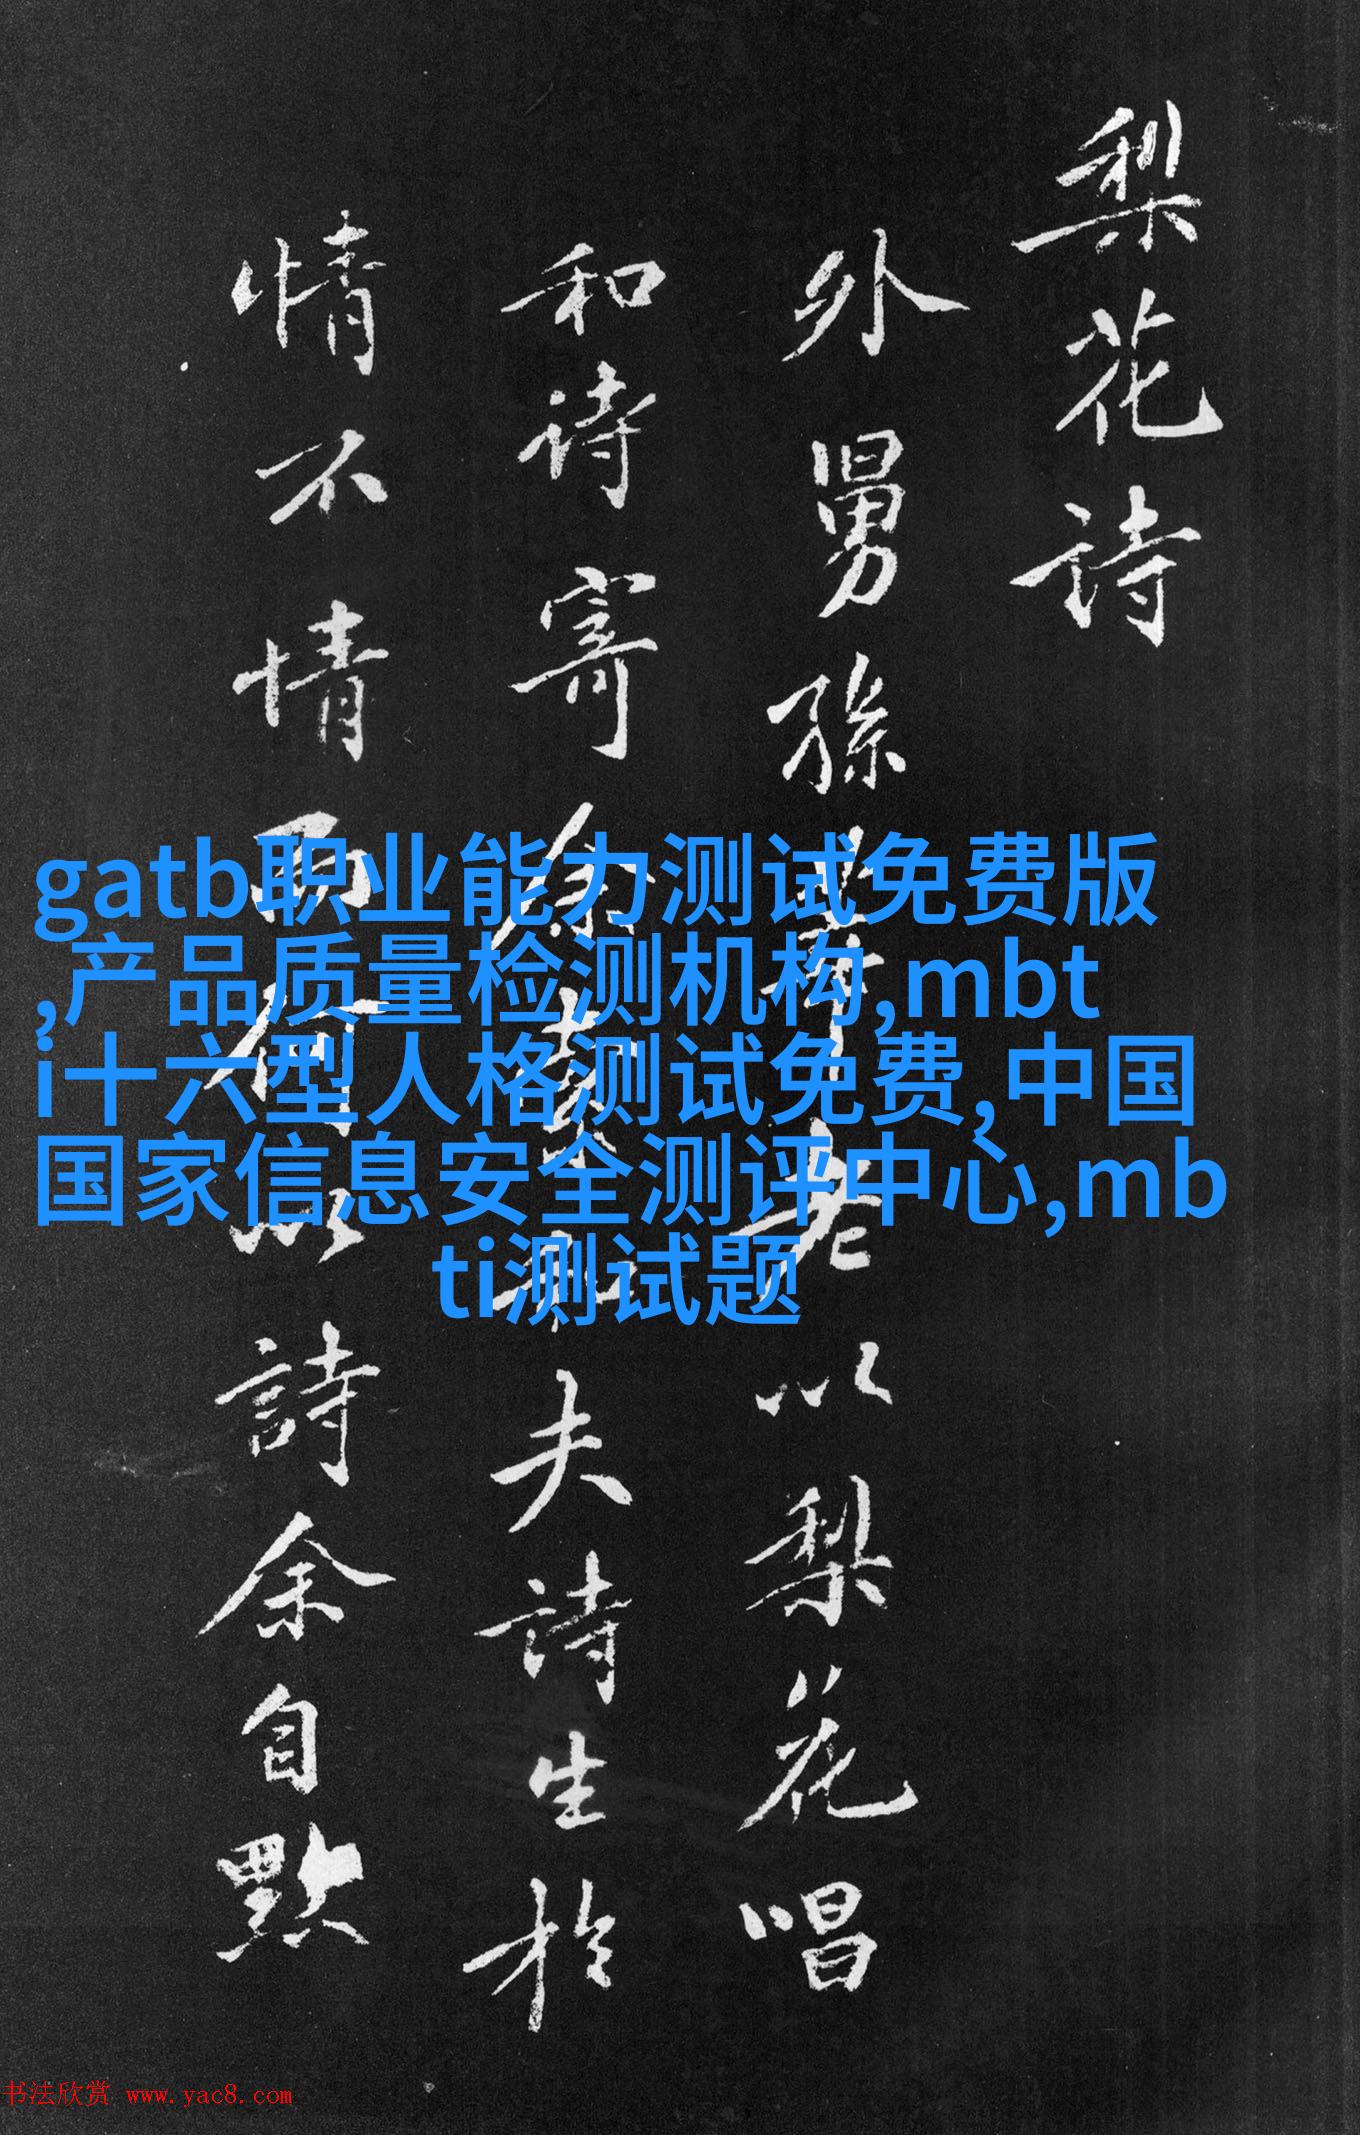 梨花詩
外舅孫莘老以梨花唱
和诗寄余索和夫詩生於
情不情而何以詩余自黙
gatb职业能力测试免费版
,产品质量检测机构,mbt
i十六型人格测试免费,中国
国家信息安全测评中心,mb
ti测试题
书法欣赏 www.yac8.com